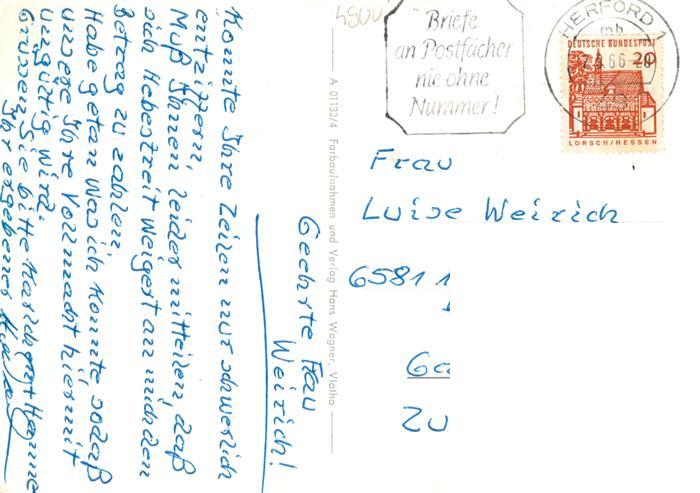 4500
Briefe
an Postfächer
nie ohne
Nummer!
HERFORD 1
mb
66
DEUTSCHE BUNDESPOST
20
LORSCH/HESSEN
Frau
Luise Weirich
6581 1
Ga
Zu
A 01133/4 Farbaufnahmen und Verlag Hans Wagner, Vlotho
Geehrte Frau
Weirich!
Konnte Ihre Zeilen nur schwerlich
entziffern,
Muß Ihnen leider mitteilen, daß
sich Hebestreit Weigert an mich den
Betrag zu zahlen,
Habe getan was ich konnte, sodaß
unsere Ihre Vollmacht hiermit
ungültig wird.
Grüssen Sie bitte
Ihr ergebener